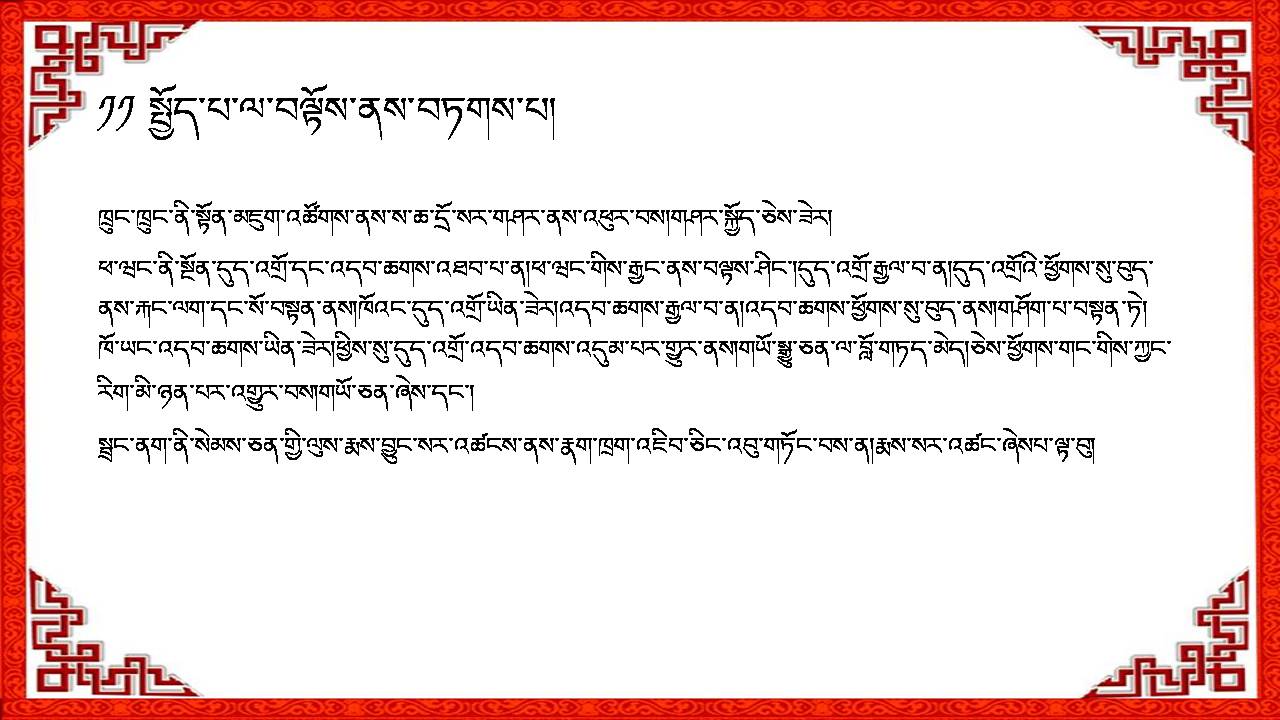 ༡༡ སྤྱོད་པ་ལ་བལྟོས་ནས་བཏགས་པ།
ཁྲུང་ཁྲུང་ནི་སྟོན་མཇུག་འཚོགས་ནས་ས་ཆ་དྲོ་སར་གཤར་ནས་འཕུར་བས།གཤར་སྐྱོད་ཅེས་ཟེར།
ཕ་ཝང་ནི་སྔོན་དུད་འགྲོ་དང་འདབ་ཆགས་འཐབ་པ་ན།ཕ་ཝང་གིས་རྒྱང་ནས་བལྟས་ཤིང་།དུད་འགྲོ་རྒྱལ་བ་ན།དུད་འགྲོའི་ཕྱོགས་སུ་བུད་
ནས་རྐང་ལག་དང་སོ་བསྟན་ནས།ཁོའང་དུད་འགྲོ་ཡིན་ཟེར།འདབ་ཆགས་རྒྱལ་བ་ན།འདབ་ཆགས་ཕྱོགས་སུ་བུད་ནས།གཤོག་པ་བསྟན་ཏེ།
ཁོ་ཡང་འདབ་ཆགས་ཡིན་ཟེར།ཕྱིས་སུ་དུད་འགྲོ་འདབ་ཆགས་འདུམ་པར་གྱུར་ནས།གཡོ་སྒྱུ་ཅན་ལ་བློ་གཏད་མེད།ཅེས་ཕྱོགས་གང་གིས་ཀྱང་
རིག་མི་ཉན་པར་འགྱུར་བས།གཡོ་ཅན་ཞེས་དང་།
སྦྲང་ནག་ནི་སེམས་ཅན་གྱི་ལུས་རྨས་བྱུང་སར་འཚངས་ནས་རྣག་ཁྲག་འཇིབ་ཅིང་འབུ་གཏོང་བས་ན།རྨས་སར་འཚང་ཞེསཔ་ལྟ་བུ།